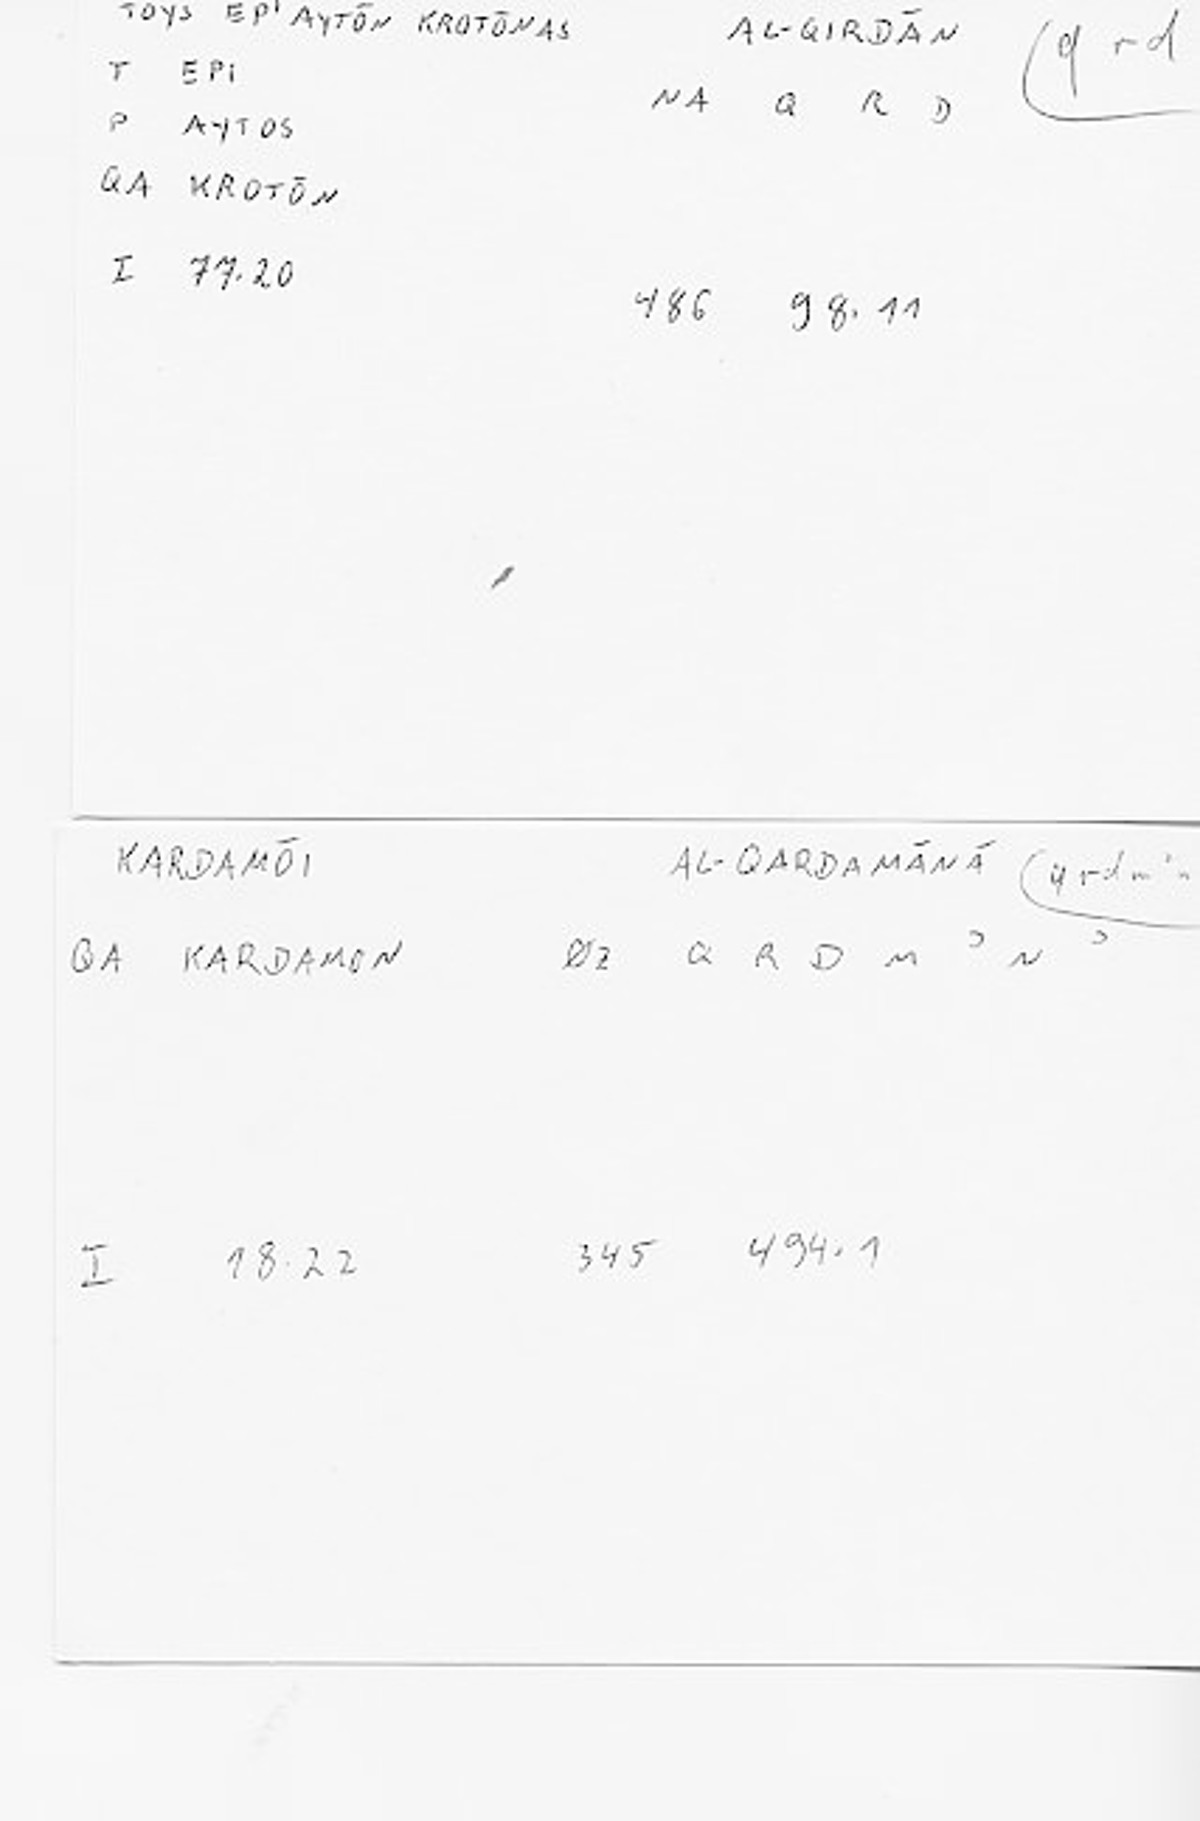 TOYS EP' AYTŌN KROTŌNAS AL-QIRDĀN (qrd
T EPI NA Q R D
P AYTOS
QA KROTŌN
I 77.20 486 98.11
KARDAMŌI AL-QARDAMĀNĀ (qrdm'n
QA KARDAMON ØZ Q R D M ʾ N ʾ
I 18.22 345 494.1